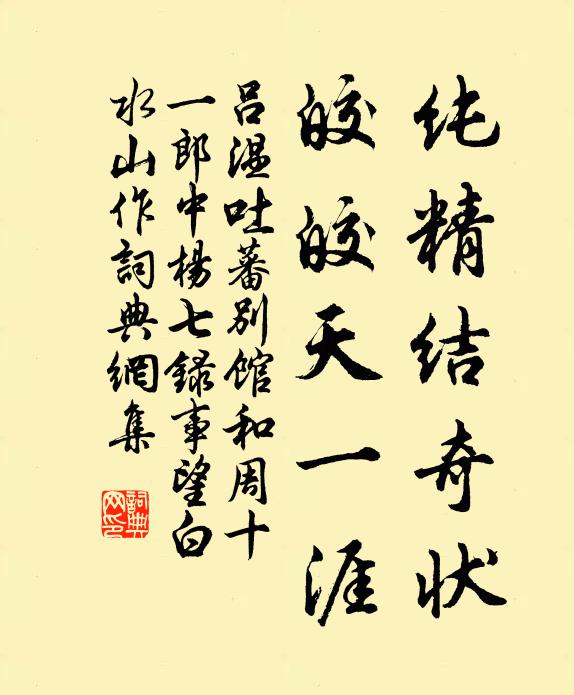 纯精结奇状
皎皎天一涯
吕温吐蕃别馆和周十
一郎中楊七録事望白
水山作詞典網集
詞典网印